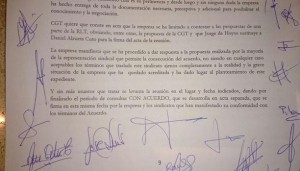 ha hecho entrega de toda la documentación necesaria, preceptiva y adicional para posibilitar el
entendimiento y la negociación.
CGT quiere que conste en acta que la empresa se ha limitado a contestar a las propuestas de una
parte de la RLT, obviando, entre otras, la propuesta de CGT y que
Daniel Álvarez Coto para la firma del acta de la reunión.
La empresa manifiesta que se ha procedido a dar respuesta a la propuesta realizada por la mayoría
de la representación sindical que permita la consecución del acuerdo, no siendo en cualquier caso
aceptables los términos que traslada
errónea de la empresa que ha quedado acreditada y ha dado lugar al planteamiento de este
expediente.
Y sin más asuntos que tratar se levanta la reunión en el lugar y fecha indicados, dando por
finalizado el período de consultas CON ACUERDO, que se desarrolla en acta separada, que se
firma en esta misma fecha por la empresa y los sindicatos que han manifestado su conformidad con
los términos del Acuerdo.